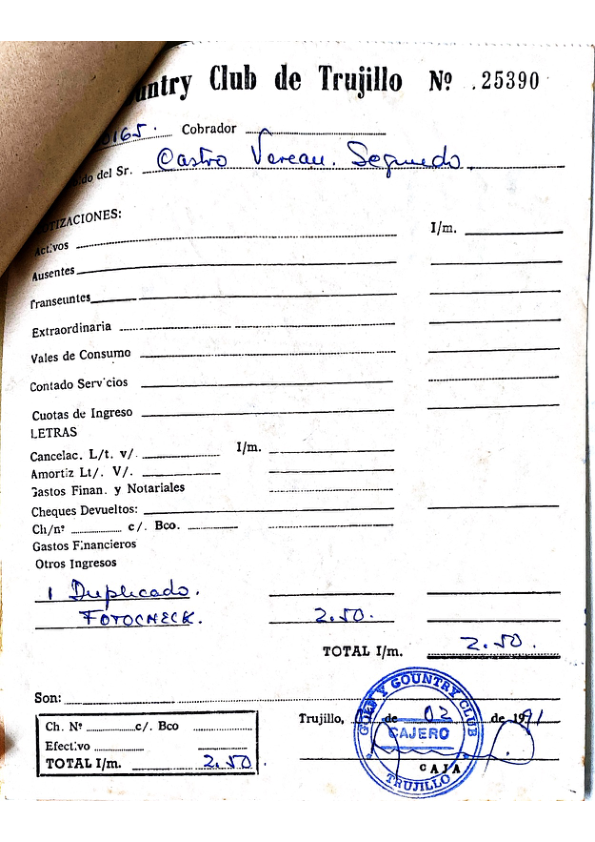 untry Club de Trujillo Nº .25390
0165. Cobrador
do del Sr. Castro Vereau. Segundo.
TIZACIONES:
Activos I/m.
Ausentes
Transeuntes
Extraordinaria
Vales de Consumo
Contado Servicios
Cuotas de Ingreso
LETRAS
Cancelac. L/t. v/. I/m.
Amortiz Lt/. V/.
Gastos Finan. y Notariales
Cheques Devueltos:
Ch/nº c/. Bco.
Gastos Financieros
Otros Ingresos
1 Duplicado.
FOTOCHECK. 2.50.
TOTAL I/m. 2.50.
Son:
Ch. Nº c/. Bco
Efectivo
TOTAL I/m. 2.50.
Trujillo, de 02 de 1991
CAJA
GOLF Y COUNTRY CLUB
CAJERO
TRUJILLO